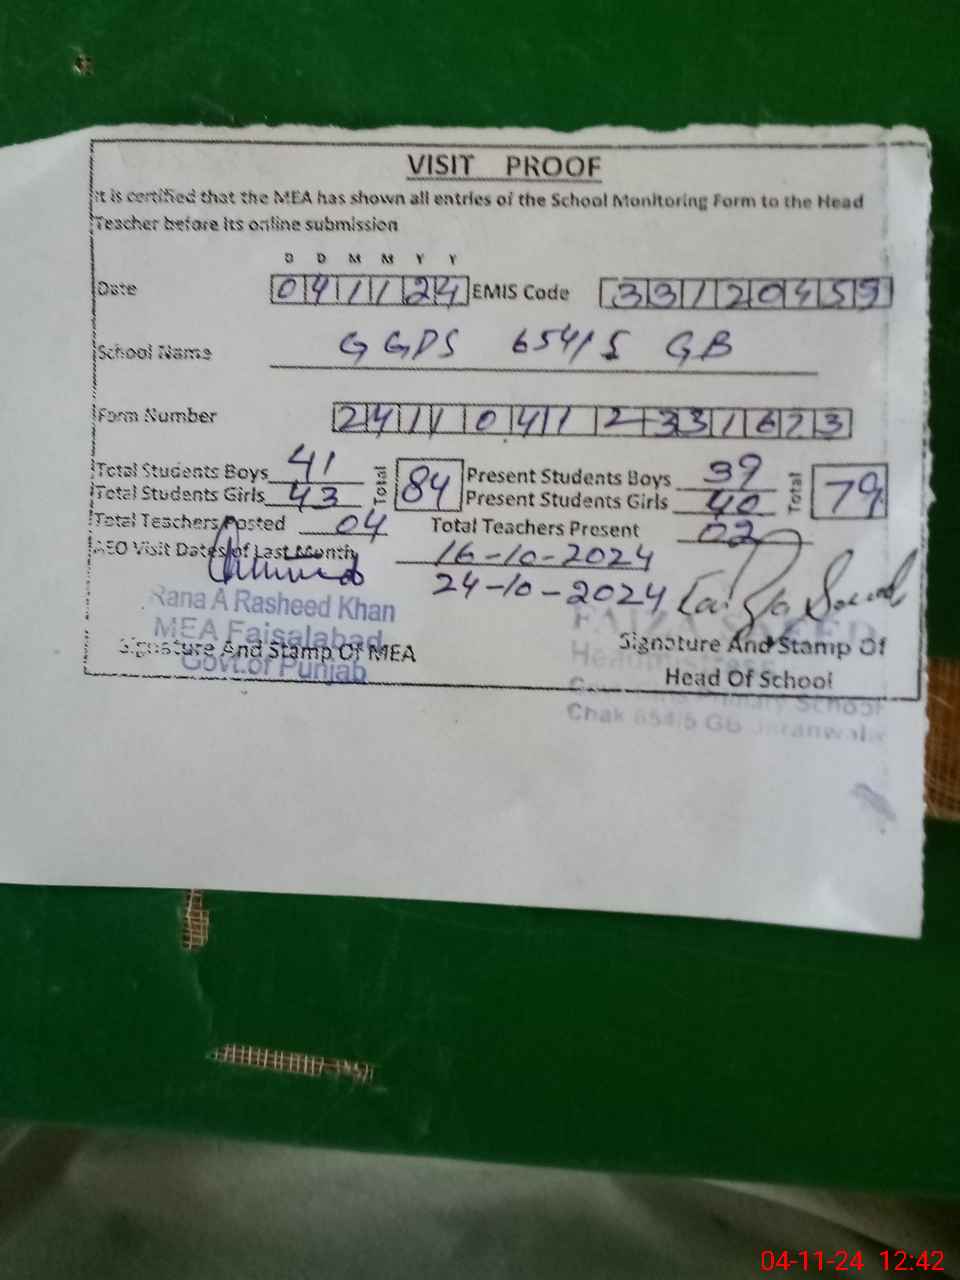 VISIT PROOF
It is certified that the MEA has shown all entries of the School Monitoring Form to the Head
Teacher before its online submission
D D M M Y Y
Date 041124 EMIS Code 33120459
School Name GGPS 654/5 GB
Form Number
Total Students Boys 41 Total 84 Present Students Boys 39 Total 79
Total Students Girls 43 Present Students Girls 40
Total Teachers Posted 04 Total Teachers Present 02
AEO Visit Dates of Last Month 16-10-2024
24-10-2024
Rana A Rasheed Khan
MEA Faisalabad
Govt.of Punjab
Signature And Stamp Of MEA
FAIZA SAEED
Signature And Stamp Of
Head Of School
Primary School
Chak 654/5 GB Jaranwala
04-11-24 12:42